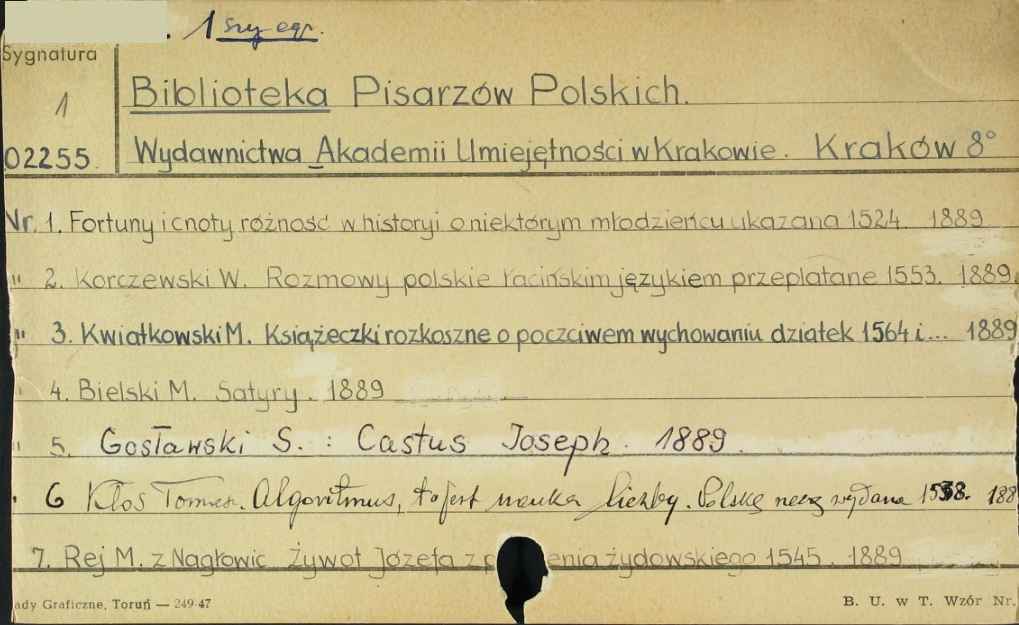 . 1 szy egz.
Sygnatura
1
02255.
Biblioteka Pisarzów Polskich.
Wydawnictwa Akademii Umiejętności w Krakowie. Kraków 8°
Nr. 1. Fortuny i cnoty różność w historyi o niektórym młodzieńcu ukazana 1524. 1889
" 2. Korczewski W. Rozmowy polskie łacińskim językiem przeplatane 1553. 1889.
" 3. Kwiatkowski M. Książeczki rozkoszne o poczciwem wychowaniu dziatek 1564 i... 1889
" 4. Bielski M. Satyry. 1889
" 5. Gosławski S. : Castus Joseph. 1889.
" 6 Kłos Tomasz. Algoritmus, to jest nauka liczby. Polską rzeczą wydana 1538. 188
7. Rej M. z Nagłowic Żywot Józefa z p enia żydowskiego 1545. 1889
ady Graficzne, Toruń — 249-47
B. U. w T. Wzór Nr.